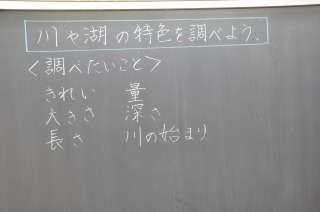 川や湖の特色を調べよう。
<調べたいこと>
きれい 量
大きさ 深さ
長さ 川の始まり